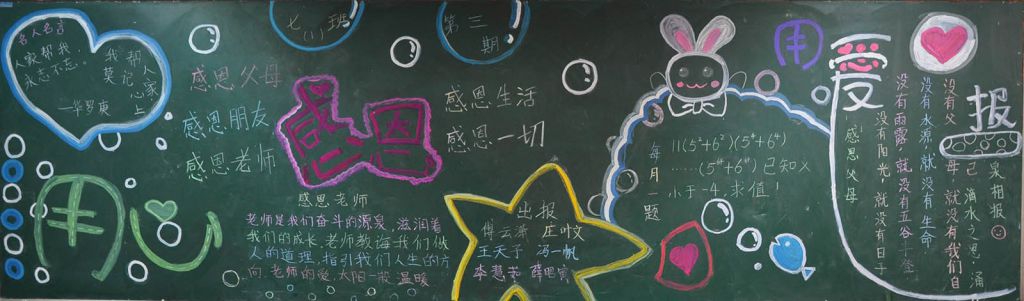 名人名言
人家帮我，
永志不忘，
我帮人家
莫记心上
——华罗庚
七（1）班
第三期
感恩父母
感恩朋友
感恩老师
感恩
感恩生活
感恩一切
用心
感恩老师
老师是我们奋斗的源泉，滋润着
我们的成长，老师教诲我们做
人的道理，指引我们人生的方
向，老师的爱，太阳一般温暖
出报
庄叶文
王天予 冯一帆
每月一题
11(5+6²)(5⁴+6⁴)
已知义
小于-4,求值！
用
爱
报
感恩父母
没有阳光，就没有日子
没有雨露，就没有五谷
没有水源，就没有生命
没有父母，就没有我们自己
滴水之恩，涌泉相报